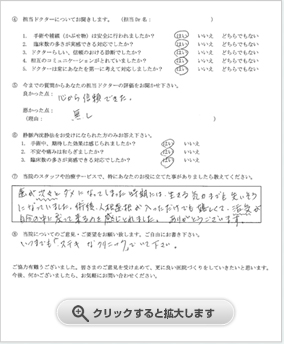 ④ 担当ドクターについてお聞きします。（担当Dr名： ）
1. 手術や補綴（かぶせ物）は安全に行われましたか？ はい いいえ どちらでもない
2. 臨床数の多さが実感できる対応でしたか？ はい いいえ どちらでもない
3. ドクターらしい、信頼のおける診断でしたか？ はい いいえ どちらでもない
4. 相互のコミュニケーションがとれていましたか？ はい いいえ どちらでもない
5. ドクターは常にあなたを第一に考えて対応しましたか？ はい いいえ どちらでもない
⑤ 今までの質問からあなたの担当ドクターの評価をお聞かせ下さい。
良かった点：
心から信頼できた。
悪かった点：
（理由： 無し ）
⑥ 静脈内鎮静法を受けになられた方のみお答え下さい。
1. 手術中、期待した効果は感じられましたか？ はい いいえ
2. 不安や痛みは和らぎましたか？ はい いいえ
3. 臨床数の多さが実感できる対応でしたか？ はい いいえ
⑦ 当院のスタッフや治療サービスで、特にあなたのお役に立てた事がありましたら教えてください。
歯が次々とダメになってしまった時期には、生きる気力までも失いそう
になっていました。術後、人相
⑧ 当院についてのご意見・ご要望をお願い致します。ご自由にお書き下さい。
いつまでも「ステキなクリニック」でいて下さい。
ご協力有難うございました。皆さまのご意見を受け止めて、更に良い病院づくりをしていきたいと思います。
今後、何かございましたら、お気軽にお問い合わせください。
クリックすると拡大します